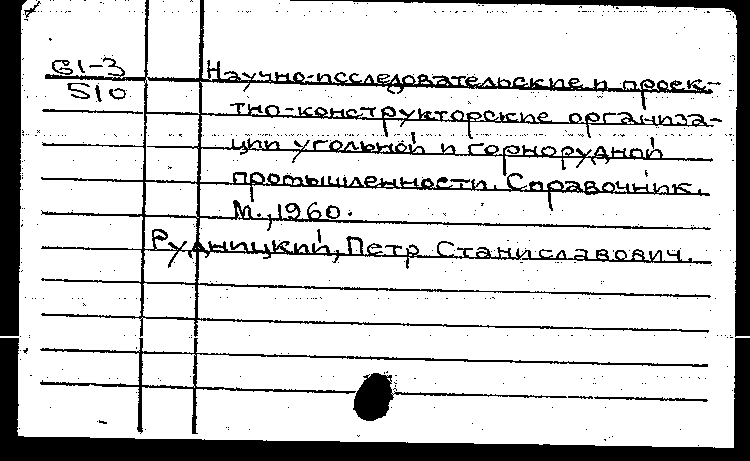 61-3
510
Научно-исследовательские и проек-
тно-конструкторские организа-
ции угольной и горнорудной
промышленности. Справочник.
М., 1960.
Рудницкий, Петр Станиславович.